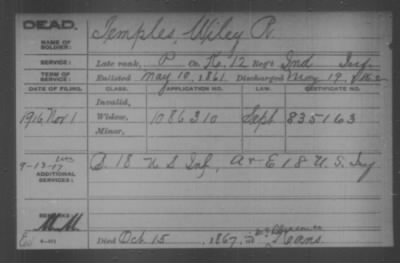 DEAD.
NAME OF SOLDIER: Temples, Wiley R.
SERVICE: Late rank, P Co. K. 12 Reg't Ind Inf.
TERM OF SERVICE: Enlisted May 10, 1861, Discharged May 19,
DATE OF FILING. CLASS. APPLICATION NO. LAW. CERTIFICATE NO.
Invalid,
1916 Nov 1 Widow, 1086310 Sept 835163
Minor,
9-13-17
ADDITIONAL SERVICES: B. 18 U S Inf, A & E 18 U. S. Inf
REMARKS:
Died Oct 15, 1867, in